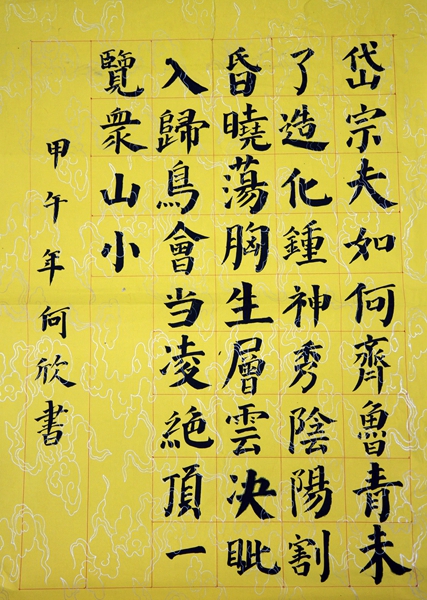 岱宗夫如何齊魯青未
了造化鍾神秀陰陽割
昏曉蕩胸生層雲决眦
入歸鳥會当凌絕頂一
覽衆山小
甲午年何欣書